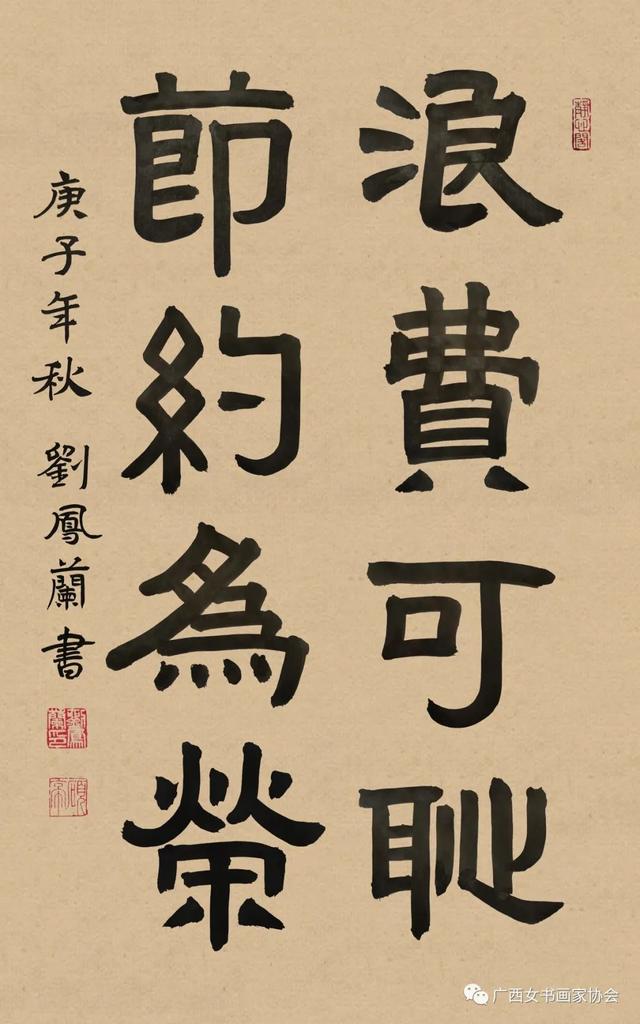 浪費可恥
節約為榮
庚子年秋 劉鳳蘭書
广西女书画家协会